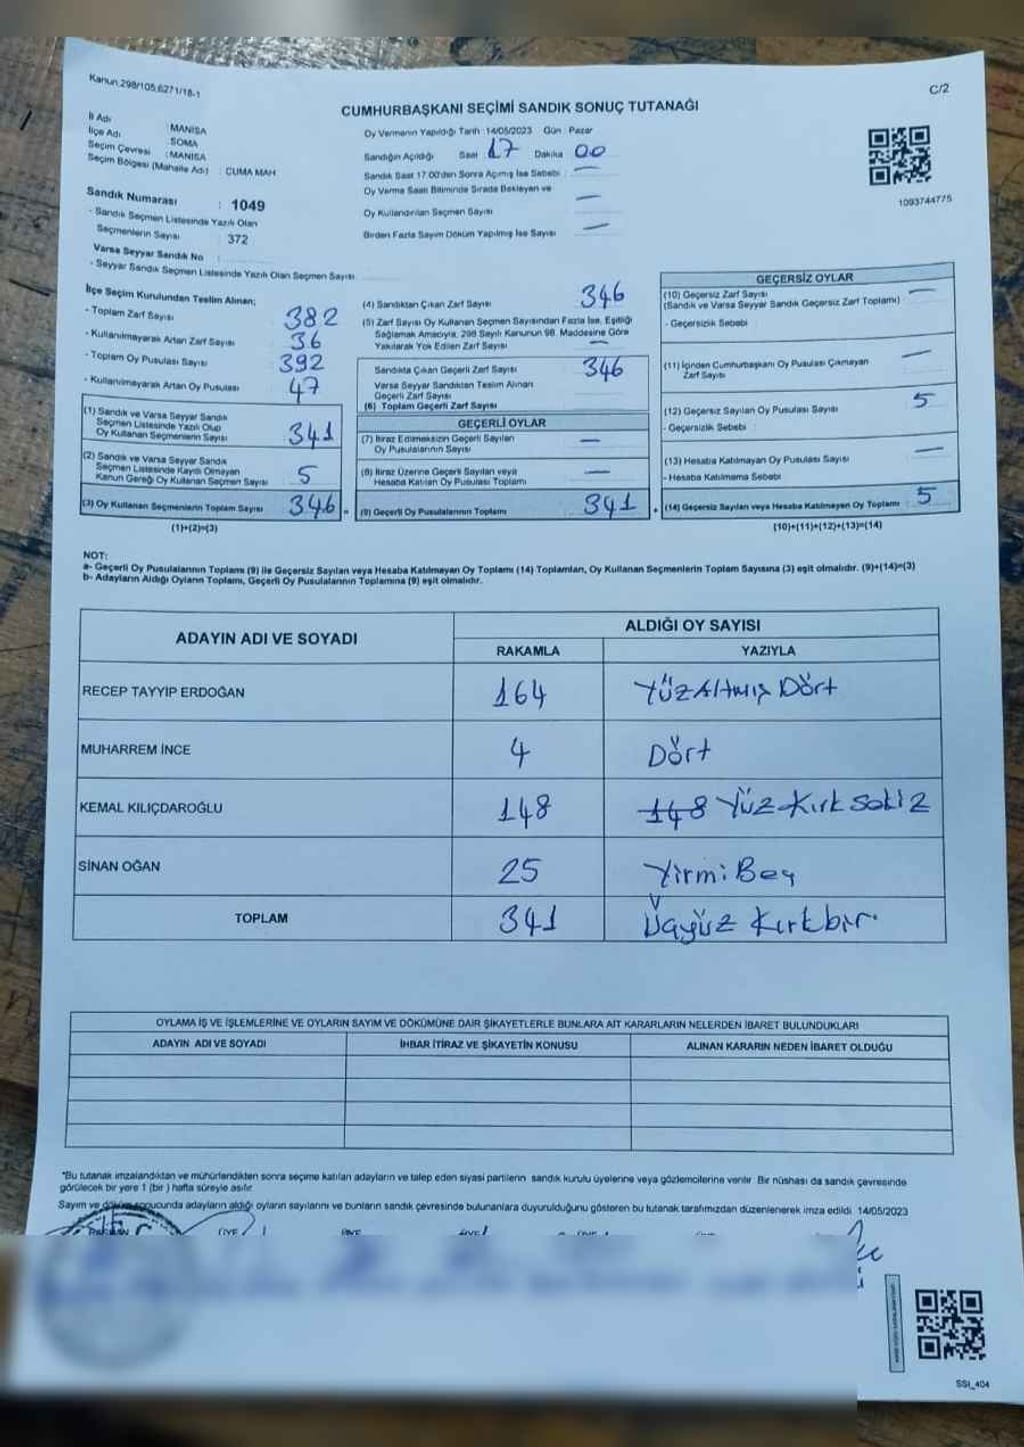 Kanun,298/105,6271/18-1
C/2
CUMHURBAŞKANI SEÇİMİ SANDIK SONUÇ TUTANAĞI
İl Adı : MANİSA
İlçe Adı : SOMA
Seçim Çevresi : MANİSA
Seçim Bölgesi (Mahalle Adı) : CUMA MAH
Sandık Numarası : 1049
- Sandık Seçmen Listesinde Yazılı Olan
Seçmenlerin Sayısı : 372
Varsa Seyyar Sandık No :
- Seyyar Sandık Seçmen Listesinde Yazılı Olan Seçmen Sayısı
Oy Vermenin Yapıldığı Tarih :14/05/2023 Gün : Pazar
Sandığın Açıldığı Saat : 17 Dakika : 00
Sandık Saat 17:00'den Sonra Açılmış İse Sebebi : —
Oy Verme Saati Bitiminde Sırada Bekleyen ve
Oy Kullandırılan Seçmen Sayısı —
Birden Fazla Sayım Döküm Yapılmış İse Sayısı —
1093744775
İlçe Seçim Kurulundan Teslim Alınan;
- Toplam Zarf Sayısı 382
- Kullanılmayarak Artan Zarf Sayısı 36
- Toplam Oy Pusulası Sayısı 392
- Kullanılmayarak Artan Oy Pusulası 47
(1) Sandık ve Varsa Seyyar Sandık
Seçmen Listesinde Yazılı Olup
Oy Kullanan Seçmenlerin Sayısı 341
(2) Sandık ve Varsa Seyyar Sandık
Seçmen Listesinde Kaydı Olmayan
Kanun Gereği Oy Kullanan Seçmen Sayısı 5
(3) Oy Kullanan Seçmenlerin Toplam Sayısı 346 =
(1)+(2)=(3)
(4) Sandıktan Çıkan Zarf Sayısı 346
(5) Zarf Sayısı Oy Kullanan Seçmen Sayısından Fazla İse, Eşitliği
Sağlamak Amacıyla, 298 Sayılı Kanunun 98. Maddesine Göre
Yakılarak Yok Edilen Zarf Sayısı —
Sandıkta Çıkan Geçerli Zarf Sayısı 346
Varsa Seyyar Sandıktan Teslim Alınan
Geçerli Zarf Sayısı
(6) Toplam Geçerli Zarf Sayısı
GEÇERLİ OYLAR
(7) İtiraz Edilmeksizin Geçerli Sayılan
Oy Pusulalarının Sayısı —
(8) İtiraz Üzerine Geçerli Sayılan veya
Hesaba Katılan Oy Pusulası Toplamı —
(9) Geçerli Oy Pusulalarının Toplamı 341 +
GEÇERSİZ OYLAR
(10) Geçersiz Zarf Sayısı —
(Sandık ve Varsa Seyyar Sandık Geçersiz Zarf Toplamı)
- Geçersizlik Sebebi :
(11) İçinden Cumhurbaşkanı Oy Pusulası Çıkmayan
Zarf Sayısı —
(12) Geçersiz Sayılan Oy Pusulası Sayısı 5
- Geçersizlik Sebebi :
(13) Hesaba Katılmayan Oy Pusulası Sayısı —
- Hesaba Katılmama Sebebi :
(14) Geçersiz Sayılan veya Hesaba Katılmayan Oy Toplamı : 5
(10)+(11)+(12)+(13)=(14)
NOT:
a- Geçerli Oy Pusulalarının Toplamı (9) ile Geçersiz Sayılan veya Hesaba Katılmayan Oy Toplamı (14) Toplamları, Oy Kullanan Seçmenlerin Toplam Sayısına (3) eşit olmalıdır. (9)+(14)=(3)
b- Adayların Aldığı Oyların Toplamı, Geçerli Oy Pusulalarının Toplamına (9) eşit olmalıdır.
ADAYIN ADI VE SOYADI
ALDIĞI OY SAYISI
RAKAMLA YAZIYLA
RECEP TAYYİP ERDOĞAN 164 YüzAltmış Dört
MUHARREM İNCE 4 Dört
KEMAL KILIÇDAROĞLU 148 148 Yüz Kırk Sekiz
SİNAN OĞAN 25 Yirmi Beş
TOPLAM 341 Üçyüz Kırkbir.
OYLAMA İŞ VE İŞLEMLERİNE VE OYLARIN SAYIM VE DÖKÜMÜNE DAİR ŞİKAYETLERLE BUNLARA AİT KARARLARIN NELERDEN İBARET BULUNDUKLARI
ADAYIN ADI VE SOYADI İHBAR İTİRAZ VE ŞİKAYETİN KONUSU ALINAN KARARIN NEDEN İBARET OLDUĞU
*Bu tutanak imzalandıktan ve mühürlendikten sonra seçime katılan adayların ve talep eden siyasi partilerin sandık kurulu üyelerine veya gözlemcilerine verilir. Bir nüshası da sandık çevresinde
görülecek bir yere 1 (bir) hafta süreyle asılır.
Sayım ve döküm sonucunda adayların aldığı oyların sayılarını ve bunların sandık çevresinde bulunanlara duyurulduğunu gösteren bu tutanak tarafımızdan düzenlenerek imza edildi. 14/05/2023
SSI_404